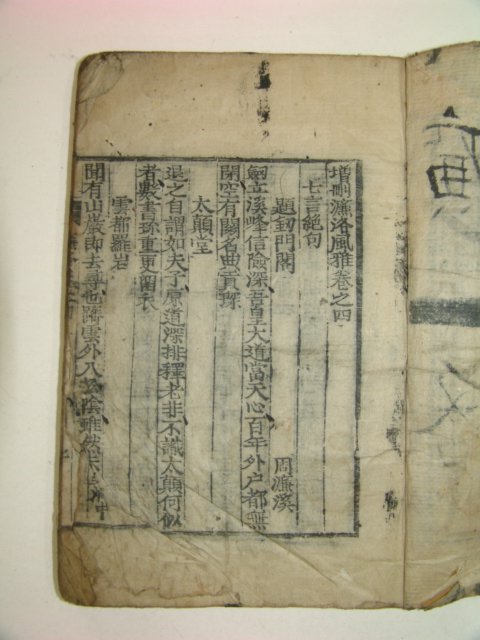 增刪濂洛風雅卷之四
七言絶句
題劒門閣 周濂溪
劒立溪峰信險深吾皇大道當天心百年外户都無
閉空有關名貢琛
太顛堂
退之自謂如夫子原道深排釋老非不識太顛何似
者數書珍重更留衣
雲都羅岩
聞有山巖即去尋也隮雲外入陰雖然未